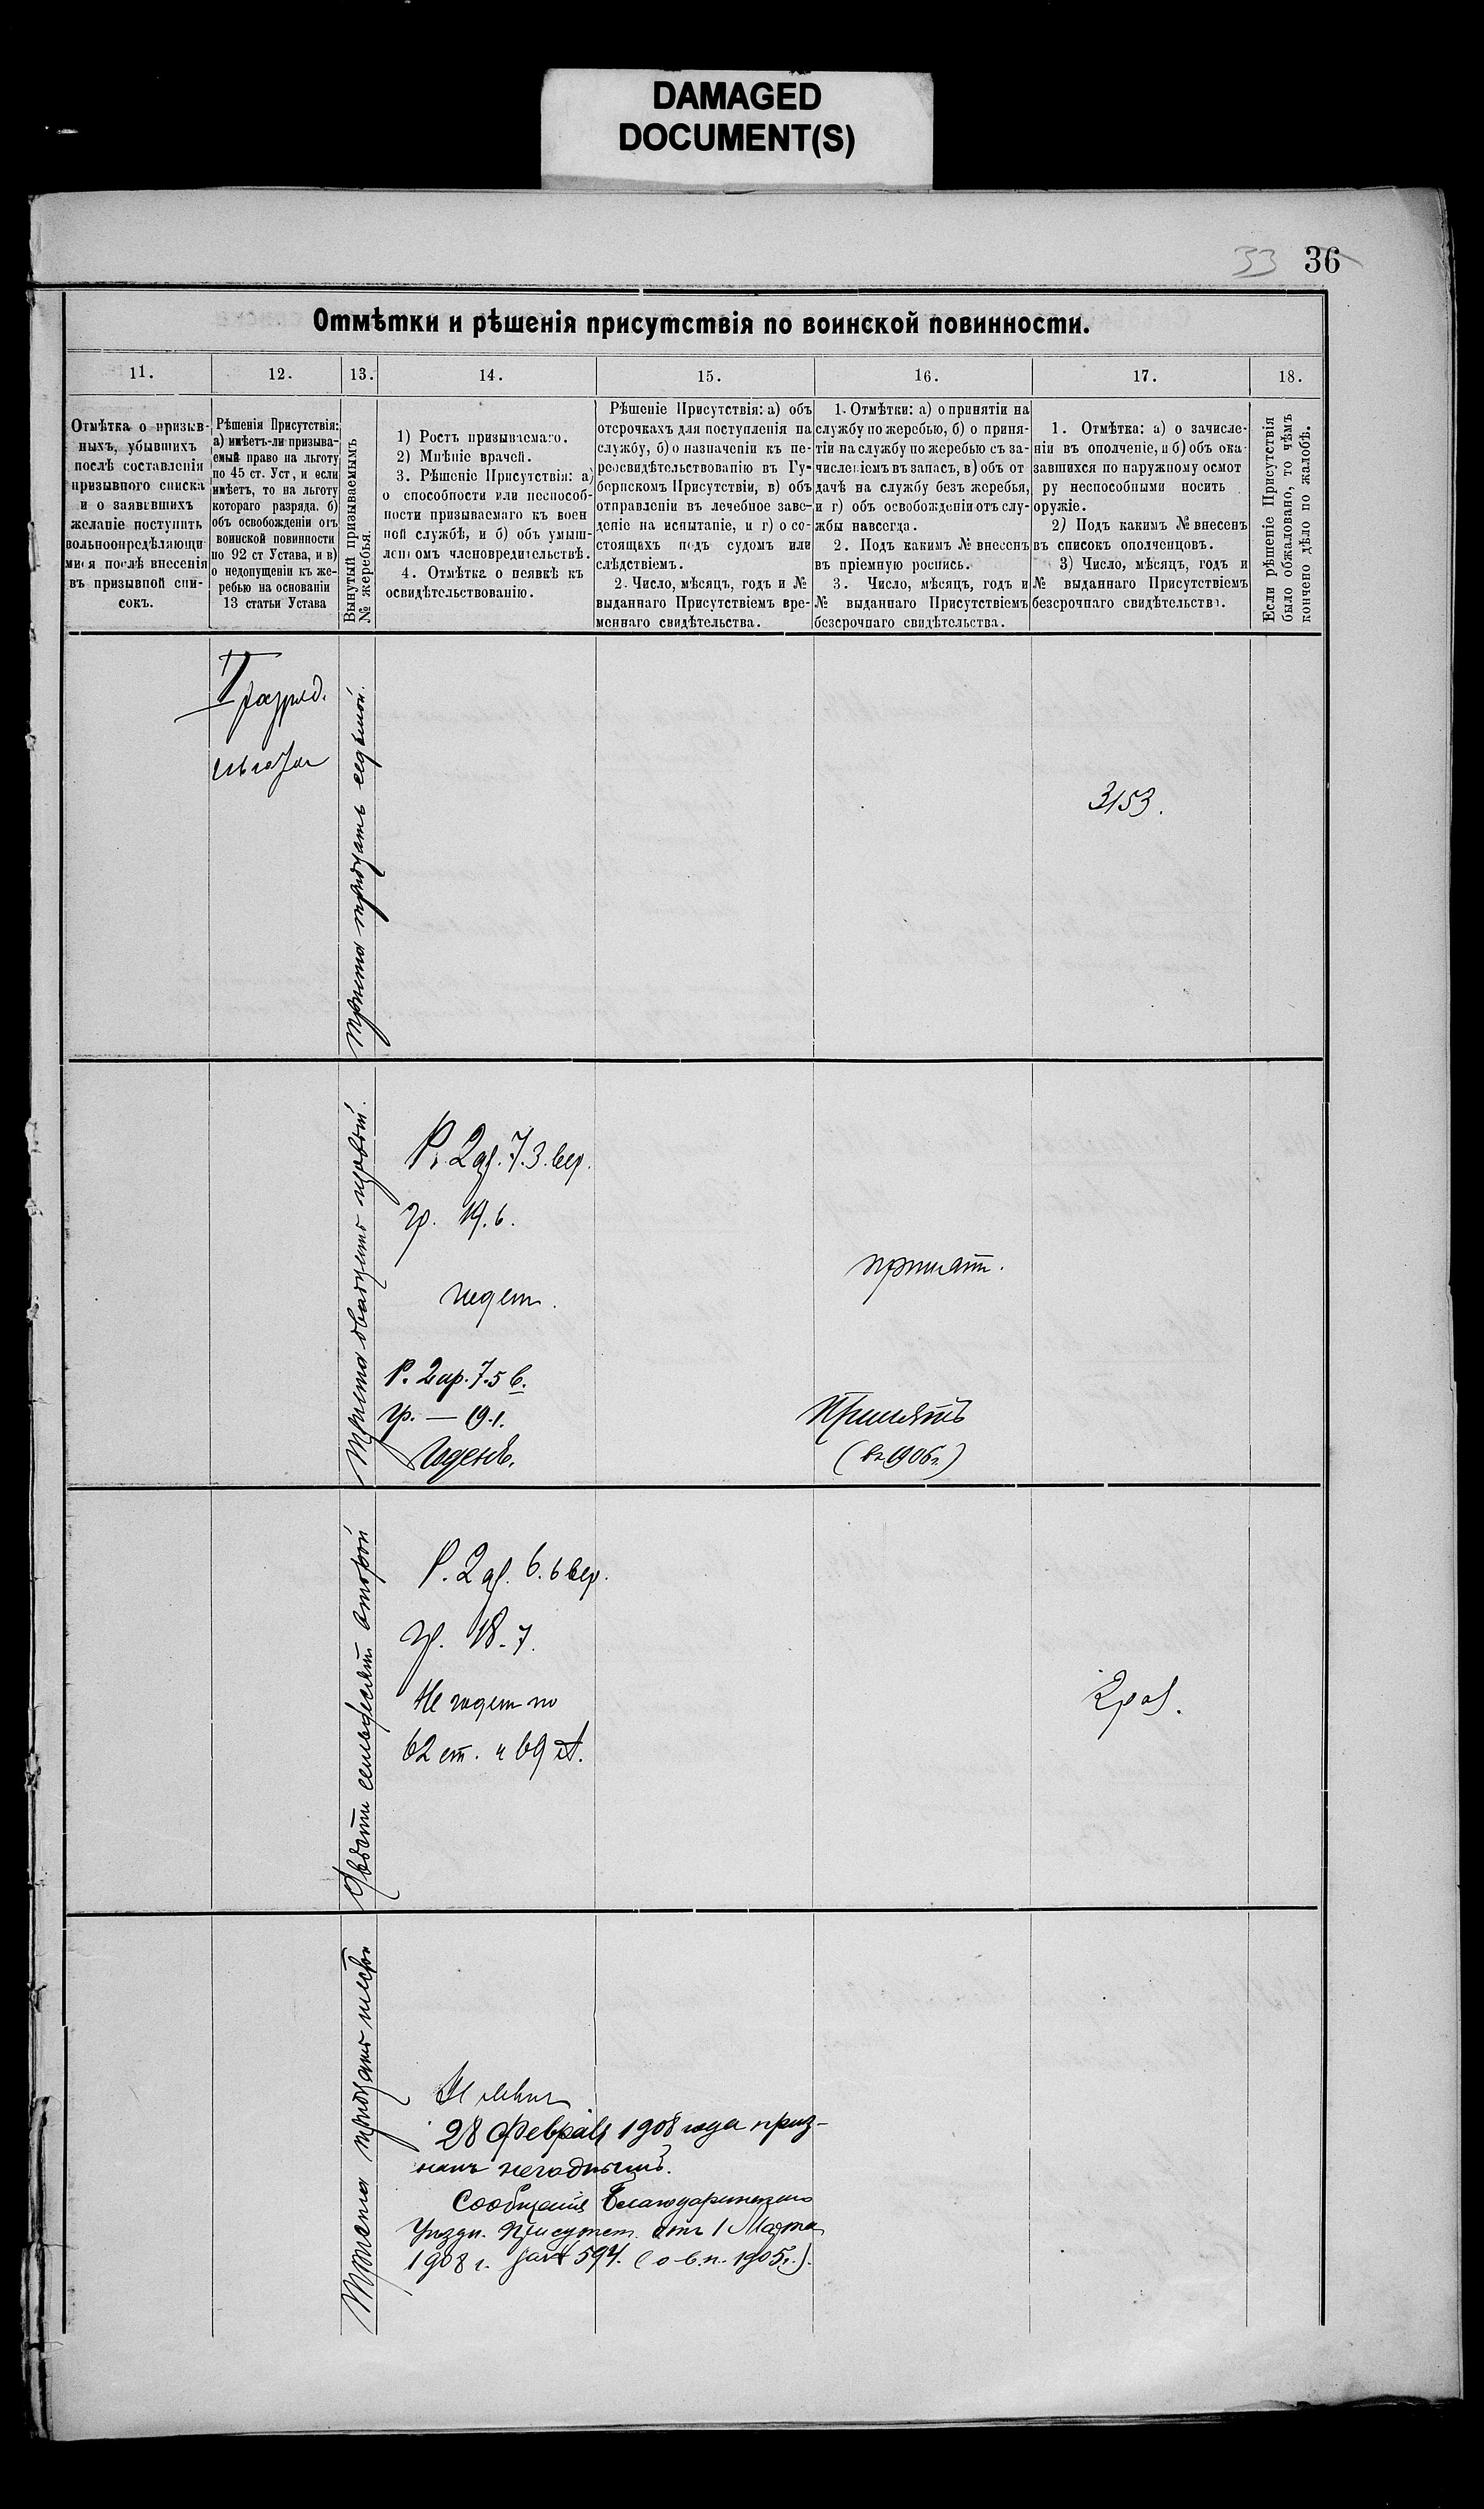 DAMAGED
DOCUMENT(S)
33 36
Отмѣтки и рѣшенія присутствія по воинской повинности.
11. 12. 13. 14. 15. 16. 17. 18.
Отмѣтка о призыв-
ныхъ, убывшихъ
послѣ составленія
призывного списка
и о заявившихъ
желаніе поступить
вольноопредѣляющи
мися послѣ внесенія
въ призывной спи-
сокъ.
Рѣшенія Присутствія:
а) имѣетъ-ли призыва-
емый право на льготу
по 45 ст. Уст, и если
имѣетъ, то на льготу
котораго разряда, б)
объ освобожденіи отъ
воинской повинности
по 92 ст Устава, и в)
о недопущеніи къ же-
ребью на основаніи
13 статьи Устава
Вынутый призываемымъ
№ жеребья.
1) Ростъ призываемаго.
2) Мнѣніе врачей.
3. Рѣшеніе Присутствія: а)
о способности или неспособ-
ности призываемаго къ воен
ной службѣ, и б) объ умыш-
леномъ членовредительствѣ.
4. Отмѣтка о неявкѣ къ
освидѣтельствованію.
Рѣшеніе Присутствія: а) объ
отсрочкахъ для поступленія на
службу, б) о назначеніи къ пе-
реосвидѣтельствованію въ Гу-
бернскомъ Присутствіи, в) объ
отправленіи въ лечебное заве-
деніе на испытаніе, и г) о со-
стоящихъ подъ судомъ или
слѣдствіемъ.
2. Число, мѣсяцъ, годъ и №
выданнаго Присутствіемъ вре-
меннаго свидѣтельства.
1. Отмѣтки: а) о принятіи на
службу по жеребью, б) о приня-
тіи на службу по жеребью съ за-
численіемъ въ запасъ, в) объ от
дачѣ на службу безъ жеребья,
и г) объ освобожденіи отъ слу-
жбы навсегда.
2. Подъ какимъ № внесенъ
въ пріемную роспись.
3. Число, мѣсяцъ, годъ и
№ выданнаго Присутствіемъ
безсрочнаго свидѣтельства.
1. Отмѣтка: а) о зачисле-
ніи въ ополченіе, и б) объ ока-
завшихся по наружному осмот
ру неспособными носить
оружіе.
2) Подъ какимъ № внесенъ
въ списокъ ополченцовъ.
3) Число, мѣсяцъ, годъ и
№ выданнаго Присутствіемъ
безсрочнаго свидѣтельства.
Если рѣшеніе Присутствія
было обжаловано, то чѣмъ
кончено дѣло по жалобѣ.
I разряд.
льгота
триста тридцать седьмой.
3153.
Триста двадцать первый.
Р. 2 ар. 7.3. вер.
гр. 19.6.
годен.
принят.
Р. 2 ар. 7.5 в.
гр. — 19.1.
Годенъ.
Принятъ
(въ 1906 г.)
Двѣсти семьдесят второй
Р. 2 ар. 6.6 вер.
гр. 18-7.
Не годен по
62 ст. и 69
2 раз.
Триста тридцать
28 Февраля 1908 года приз-
нанъ негоднымъ.
Сообщеніе Благодаринскаго
Уѣздн. Присутст. отъ 1 Марта
1908 г. за № 594. (о в.п. 1905 г.).